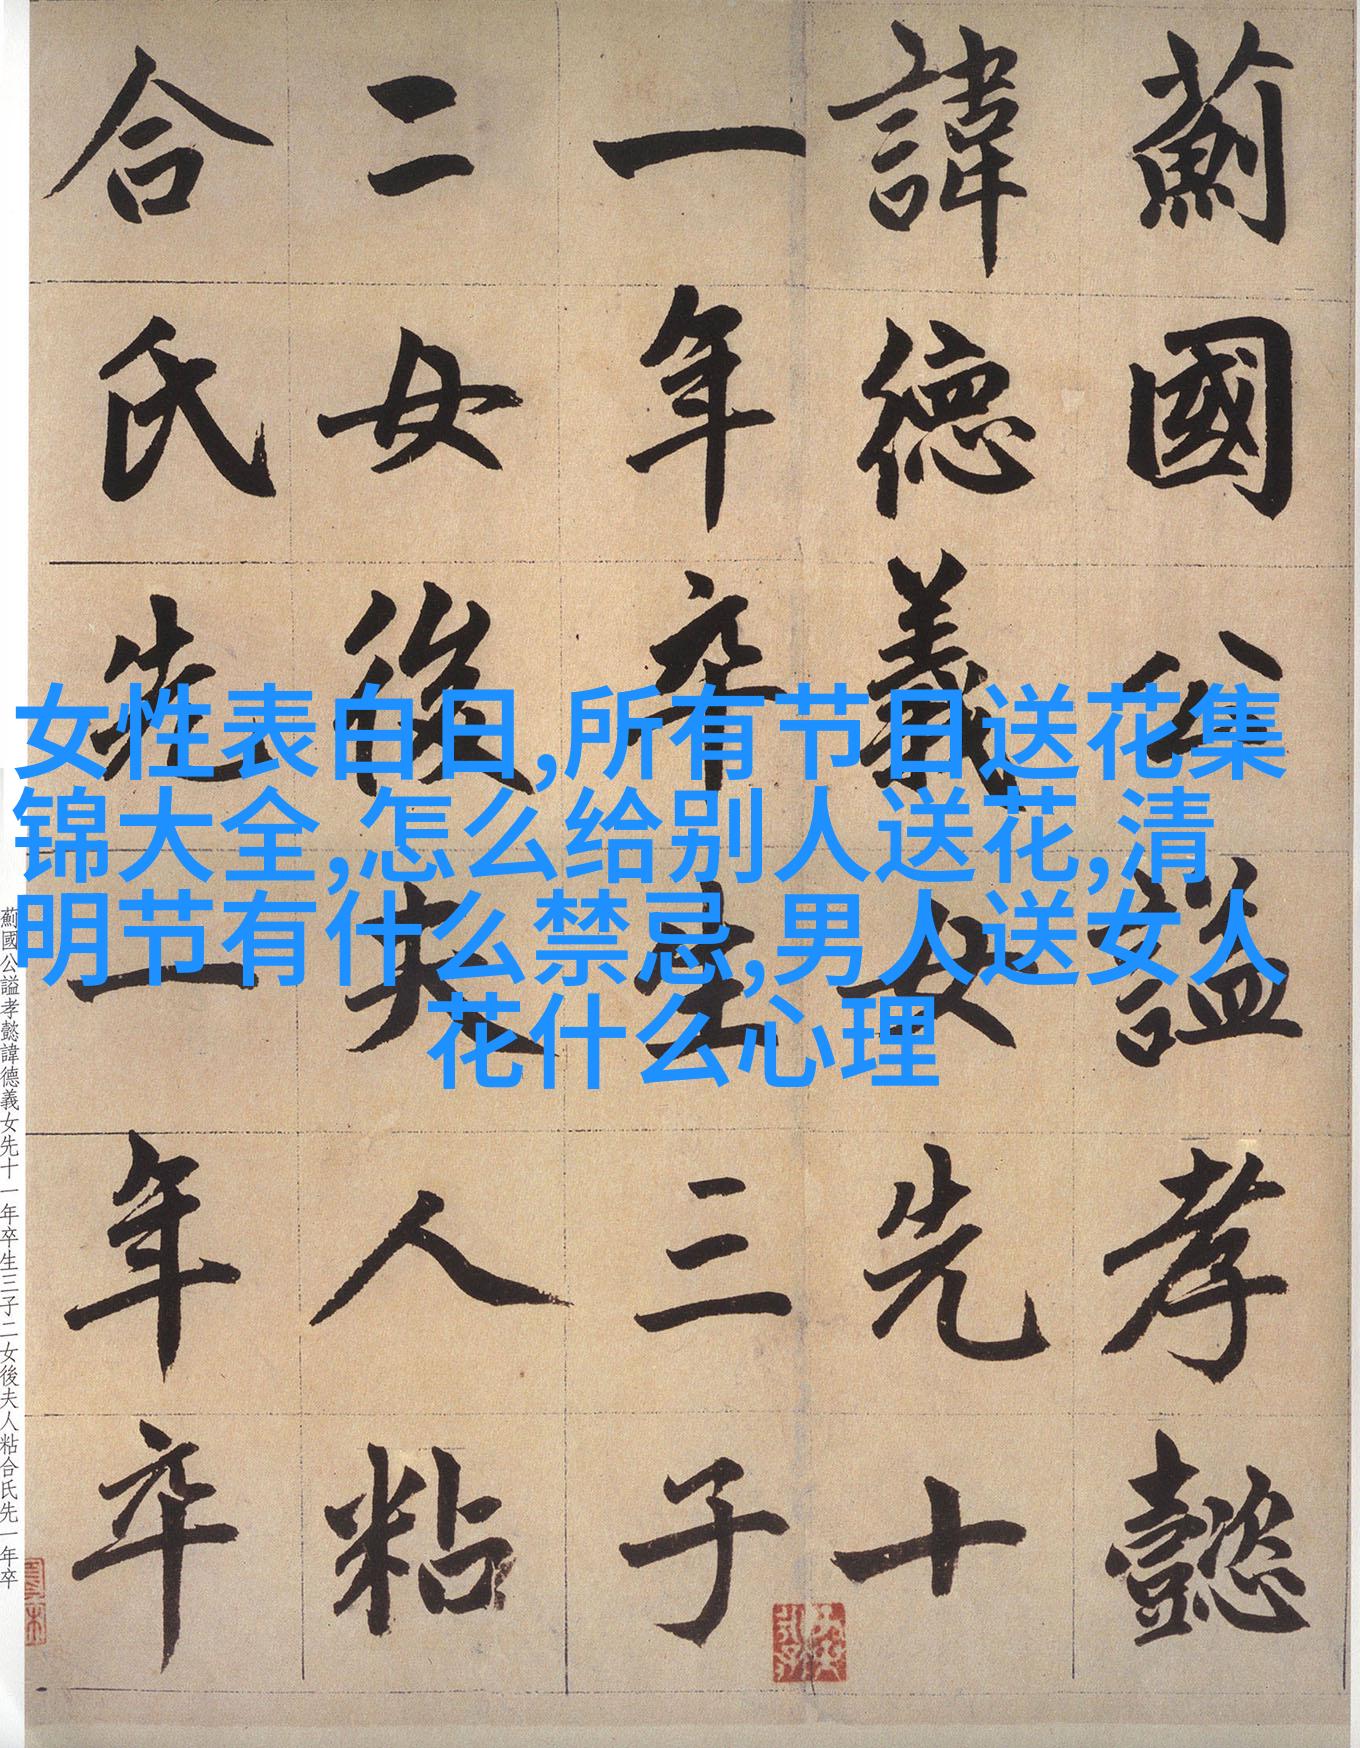 薊國公謚孝懿
諱德義女先十
一年卒生三子
二女後夫人粘
合氏先一年卒
女性表白日,所有节日送花集
锦大全,怎么给别人送花,清
明节有什么禁忌,男人送女人
花什么心理
薊國公謚孝懿諱德義女先十一年卒生三子二女後夫人粘合氏先一年卒